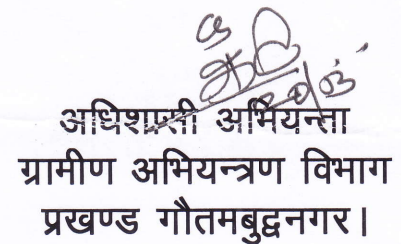 अधिशासी अभियन्ता
ग्रामीण अभियन्त्रण विभाग
प्रखण्ड गौतमबुद्वनगर।